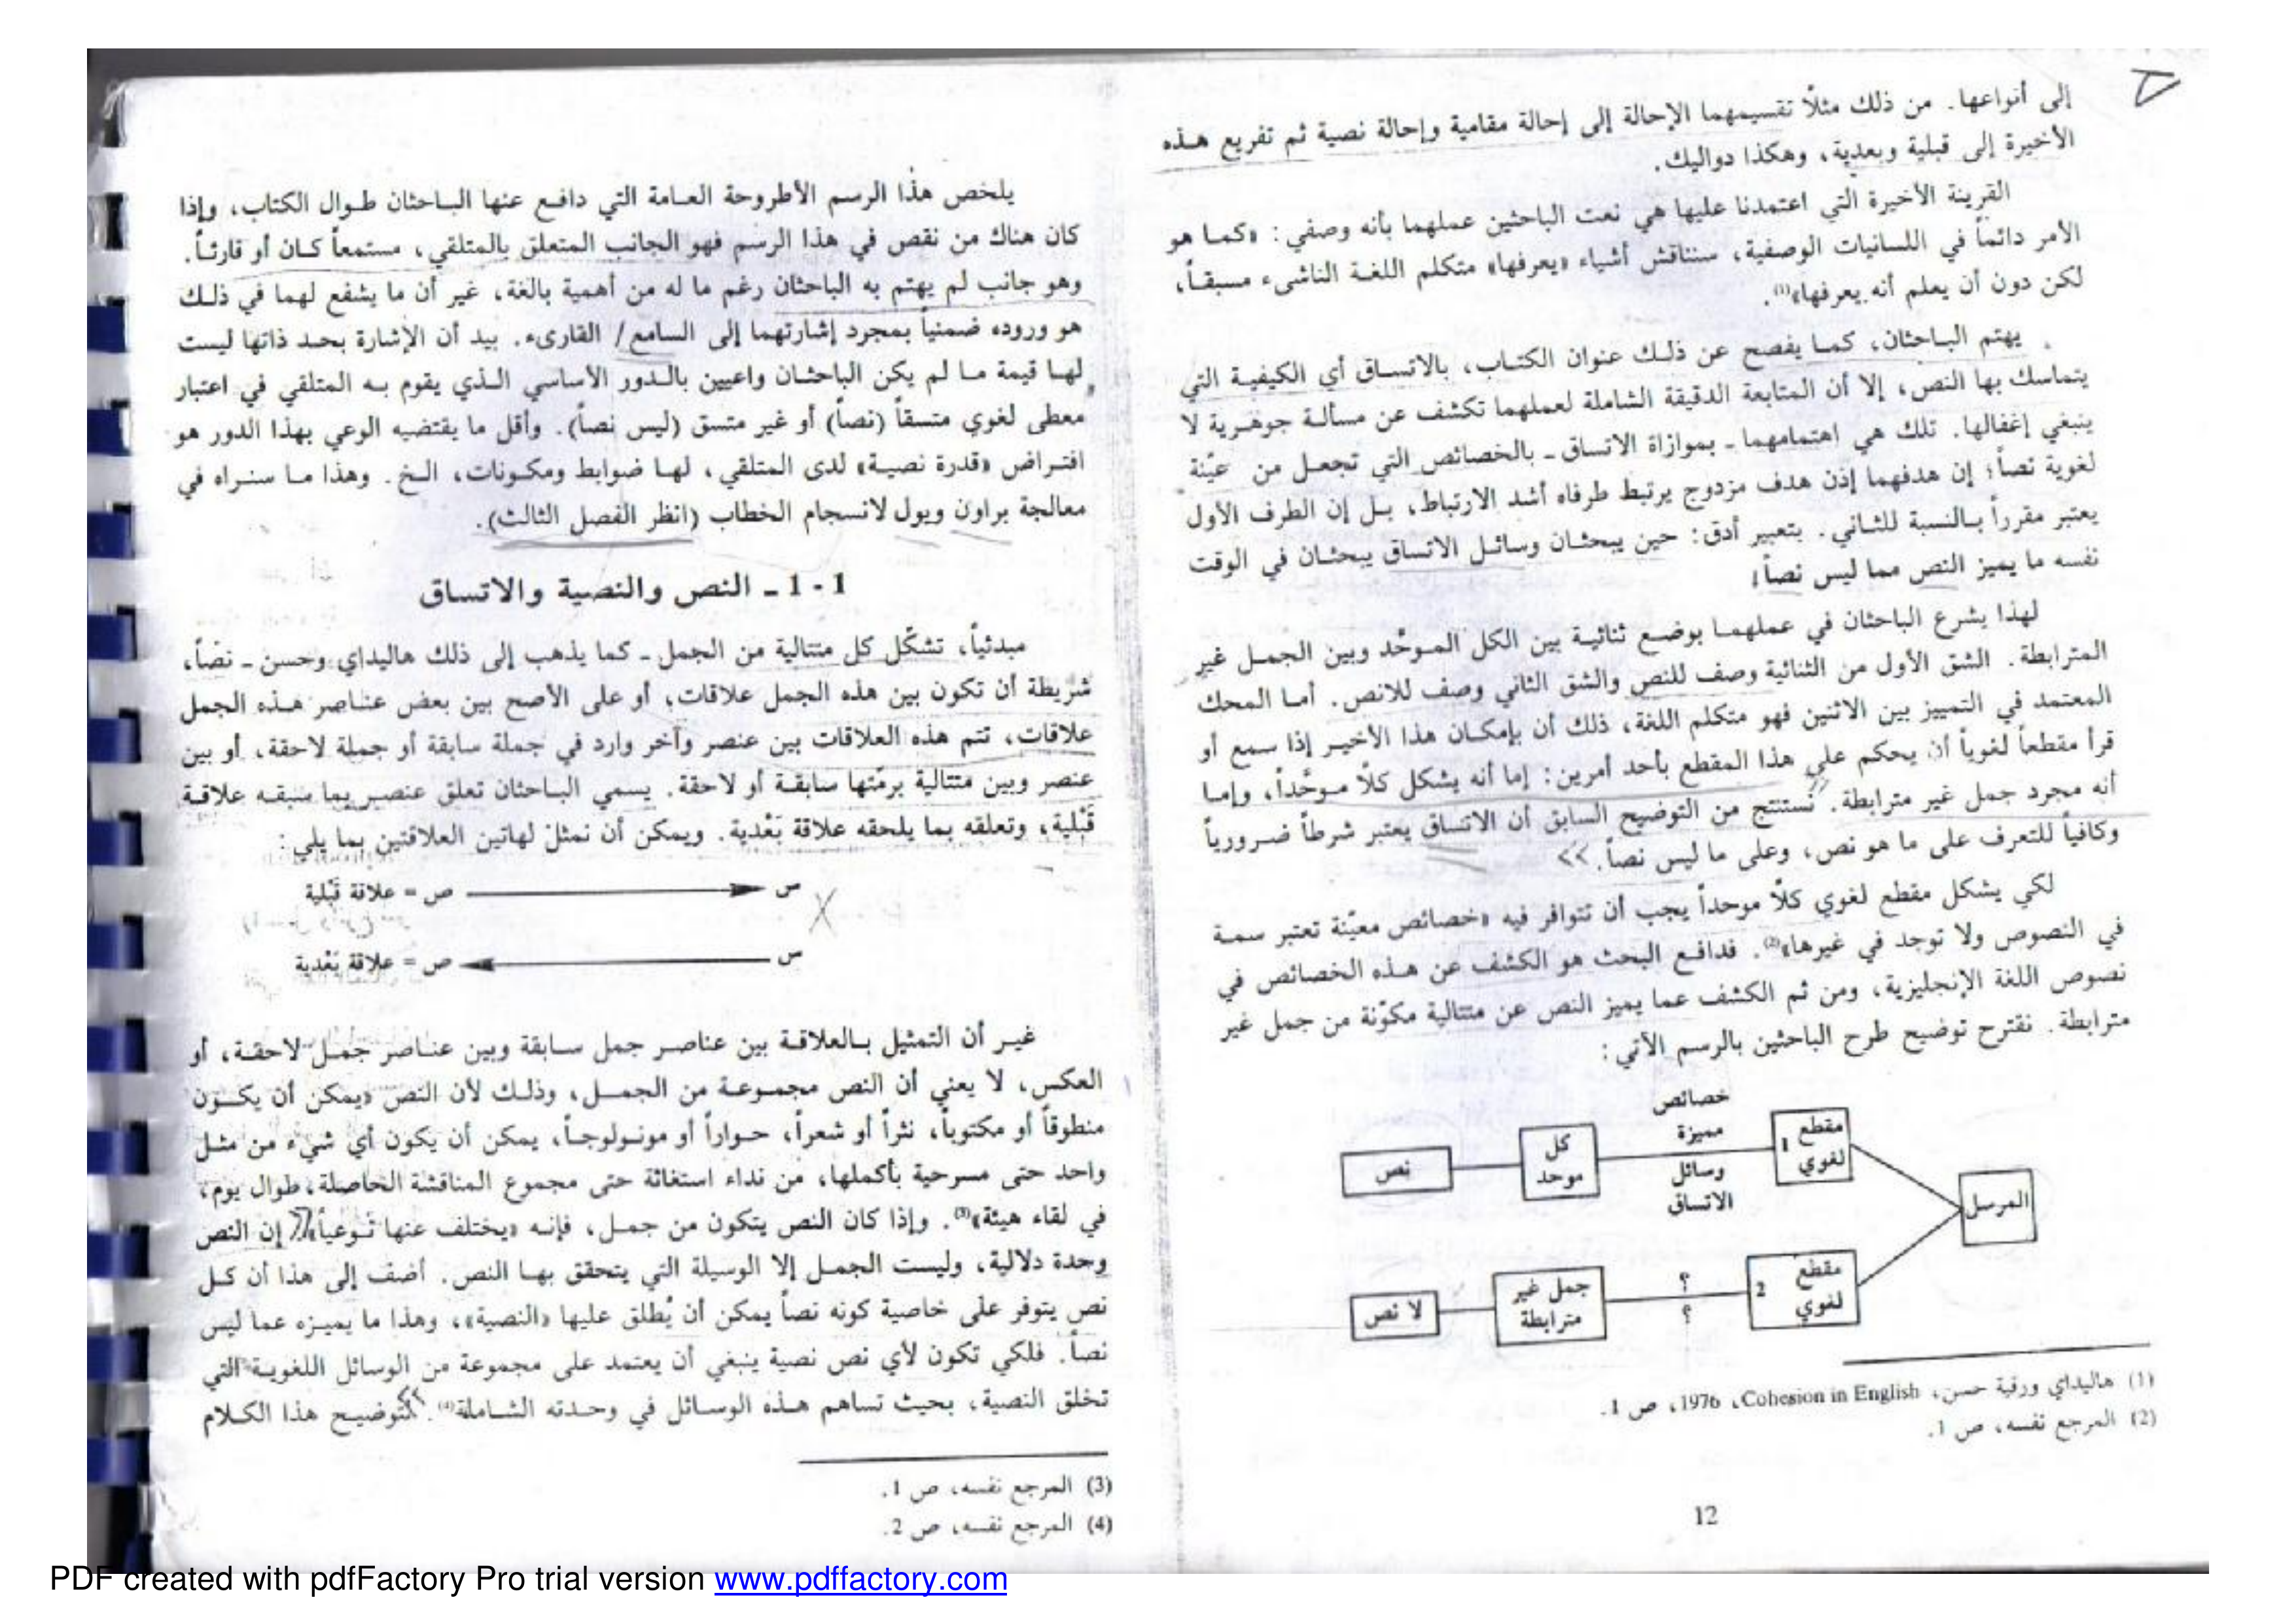 إلى أنواعها. من ذلك مثلاً تقسيمهما الإحالة إلى إحالة مقامية وإحالة نصية ثم تفريع هذه
الأخيرة إلى قبلية وبعدية، وهكذا دواليك.
القرينة الأخيرة التي اعتمدنا عليها هي نعت الباحثين عملهما بأنه وصفي: «كما هو
الأمر دائماً في اللسانيات الوصفية، سنناقش أشياء «يعرفها» متكلم اللغة الناشىء مسبقاً،
لكن دون أن يعلم أنه يعرفها»(1).
يهتم الباحثان، كما يفصح عن ذلك عنوان الكتاب، بالاتساق أي الكيفية التي
يتماسك بها النص، إلا أن المتابعة الدقيقة الشاملة لعملهما تكشف عن مسألة جوهرية لا
ينبغي إغفالها. تلك هي اهتمامهما - بموازاة الاتساق - بالخصائص التي تجعل من عيّنة
لغوية نصاً؛ إن هدفهما إذن هدف مزدوج يرتبط طرفاه أشد الارتباط، بل إن الطرف الأول
يعتبر مقرراً بالنسبة للثاني. بتعبير أدق: حين يبحثان وسائل الاتساق يبحثان في الوقت
نفسه ما يميز النص مما ليس نصاً!
لهذا يشرع الباحثان في عملهما بوضع ثنائية بين الكل الموحّد وبين الجمل غير
المترابطة. الشق الأول من الثنائية وصف للنص والشق الثاني وصف للانص. أما المحك
المعتمد في التمييز بين الاثنين فهو متكلم اللغة، ذلك أن بإمكان هذا الأخير إذا سمع أو
قرأ مقطعاً لغوياً أن يحكم على هذا المقطع بأحد أمرين: إما أنه يشكل كلاً موحّداً، وإما
أنه مجرد جمل غير مترابطة. نستنتج من التوضيح السابق أن الاتساق يعتبر شرطاً ضرورياً
وكافياً للتعرف على ما هو نص، وعلى ما ليس نصاً.
لكي يشكل مقطع لغوي كلاً موحداً يجب أن تتوافر فيه «خصائص معيّنة تعتبر سمة
في النصوص ولا توجد في غيرها»(2). فدافع البحث هو الكشف عن هذه الخصائص في
نصوص اللغة الإنجليزية، ومن ثم الكشف عما يميز النص عن متتالية مكوّنة من جمل غير
مترابطة. نقترح توضيح طرح الباحثين بالرسم الآتي:
المرسل
مقطع لغوي 1
خصائص
مميزة
وسائل
الاتساق
كل
موحد
نص
مقطع لغوي 2
؟
؟
جمل غير
مترابطة
لا نص
(1) هاليداي ورقية حسن، Cohesion in English، 1976، ص 1.
(2) المرجع نفسه، ص 1.
12
يلخص هذا الرسم الأطروحة العامة التي دافع عنها الباحثان طوال الكتاب، وإذا
كان هناك من نقص في هذا الرسم فهو الجانب المتعلق بالمتلقي، مستمعاً كان أو قارئاً.
وهو جانب لم يهتم به الباحثان رغم ما له من أهمية بالغة، غير أن ما يشفع لهما في ذلك
هو وروده ضمنياً بمجرد إشارتهما إلى السامع/ القارىء. بيد أن الإشارة بحد ذاتها ليست
لها قيمة ما لم يكن الباحثان واعيين بالدور الأساسي الذي يقوم به المتلقي في اعتبار
معطى لغوي متسقاً (نصاً) أو غير متسق (ليس نصاً). وأقل ما يقتضيه الوعي بهذا الدور هو
افتراض «قدرة نصية» لدى المتلقي، لها ضوابط ومكونات، الخ. وهذا ما سنراه في
معالجة براون ويول لانسجام الخطاب (انظر الفصل الثالث).
1 - 1 - النص والنصية والاتساق
مبدئياً، تشكّل كل متتالية من الجمل - كما يذهب إلى ذلك هاليداي وحسن - نصاً،
شريطة أن تكون بين هذه الجمل علاقات، أو على الأصح بين بعض عناصر هذه الجمل
علاقات، تتم هذه العلاقات بين عنصر وآخر وارد في جملة سابقة أو جملة لاحقة، أو بين
عنصر وبين متتالية برمّتها سابقة أو لاحقة. يسمي الباحثان تعلق عنصر بما سبقه علاقة
قَبْلية، وتعلقه بما يلحقه علاقة بَعْدية. ويمكن أن نمثل لهاتين العلاقتين بما يلي:
س ص = علاقة قَبْلية
س ص = علاقة بَعْدية
غير أن التمثيل بالعلاقة بين عناصر جمل سابقة وبين عناصر جمل لاحقة، أو
العكس، لا يعني أن النص مجموعة من الجمل، وذلك لأن النص «يمكن أن يكون
منطوقاً أو مكتوباً، نثراً أو شعراً، حواراً أو مونولوجاً، يمكن أن يكون أي شيء من مثل
واحد حتى مسرحية بأكملها، من نداء استغاثة حتى مجموع المناقشة الحاصلة طوال يوم،
في لقاء هيئة»(3). وإذا كان النص يتكون من جمل، فإنه «يختلف عنها نوعياً». إن النص
وحدة دلالية، وليست الجمل إلا الوسيلة التي يتحقق بها النص. أضف إلى هذا أن كل
نص يتوفر على خاصية كونه نصاً يمكن أن يُطلق عليها «النصية»، وهذا ما يميزه عما ليس
نصاً. فلكي تكون لأي نص نصية ينبغي أن يعتمد على مجموعة من الوسائل اللغوية التي
تخلق النصية، بحيث تساهم هذه الوسائل في وحدته الشاملة(4). لتوضيح هذا الكلام
(3) المرجع نفسه، ص 1.
(4) المرجع نفسه، ص 2.
PDF created with pdfFactory Pro trial version www.pdffactory.com